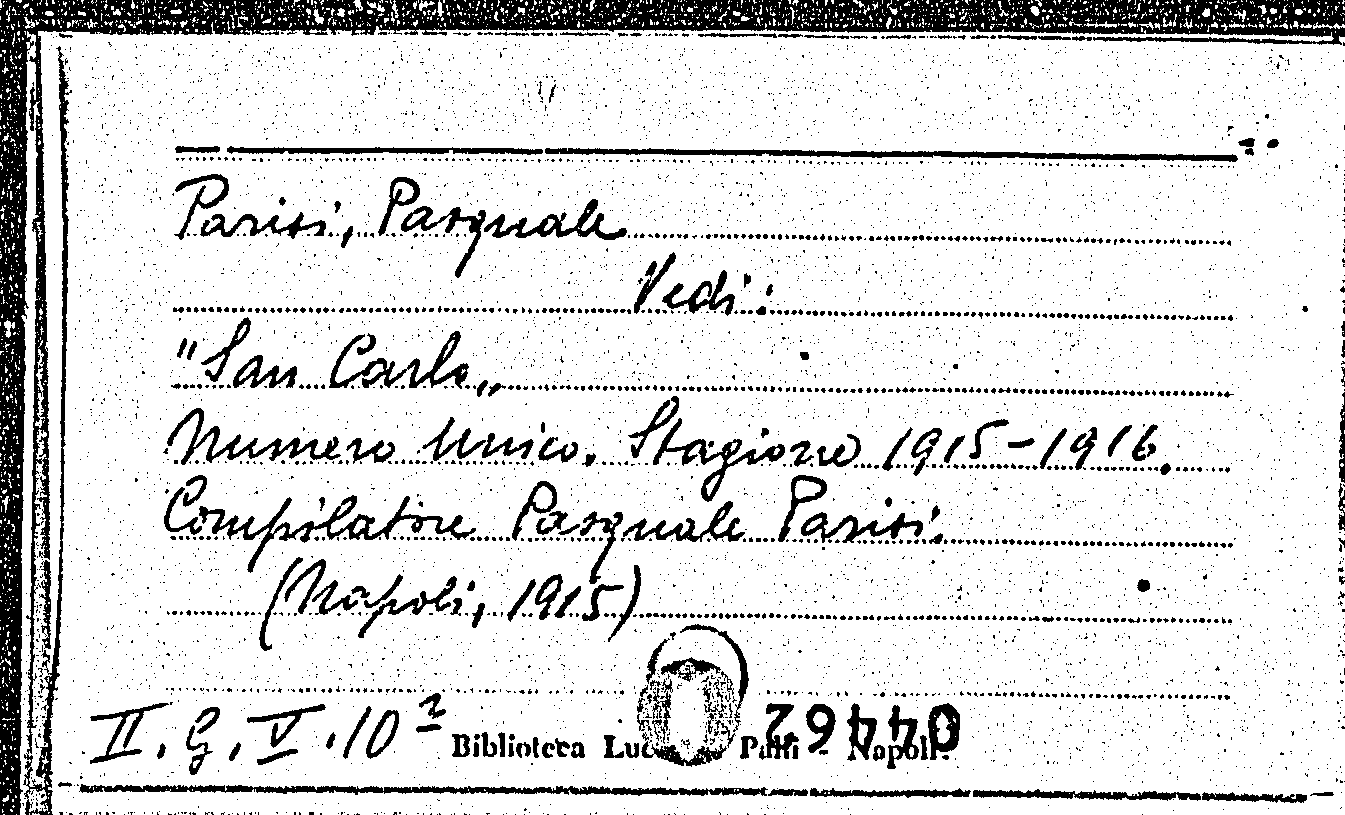 Parisi, Pasquale
Vedi:
"San Carlo„
Numero Unico. Stagione 1915-1916.
Compilatore Pasquale Parisi.
(Napoli, 1915)
II. G. V. 10²
Biblioteca Palli - Napoli.